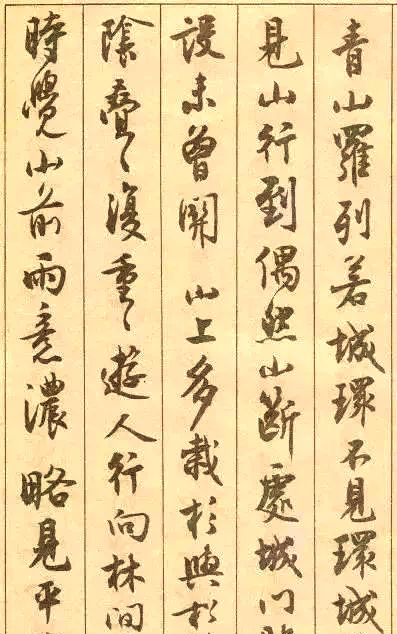 青山羅列若城環不見環城
見山行到偶然山斷處城門
設未曾開 山上多栽杉與松
陰疊〻復重〻遊人行向林間
時覺山前雨意濃 略見平